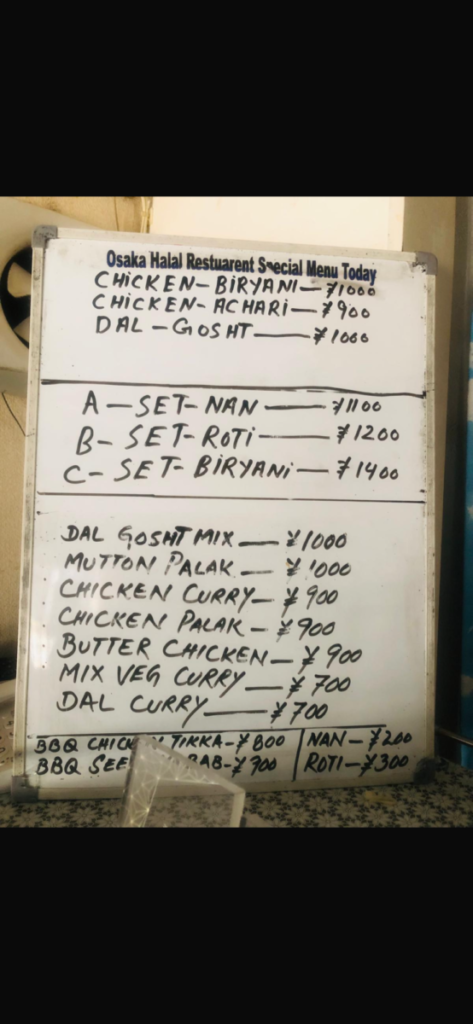 Osaka Halal Restuarent Special Menu Today
CHICKEN-BIRYANI-¥1000
CHICKEN-ACHARI-¥900
DAL-GOSHT-¥1000
A-SET-NAN-¥1100
B-SET-ROTI-¥1200
C-SET-BIRYANI-¥1400
DAL GOSHT MIX-¥1000
MUTTON PALAK-¥1000
CHICKEN CURRY-¥900
CHICKEN PALAK-¥900
BUTTER CHICKEN-¥900
MIX VEG CURRY-¥700
DAL CURRY-¥700
BBQ TIKKA-¥800 NAN-¥200
BBQ ROTI-¥300